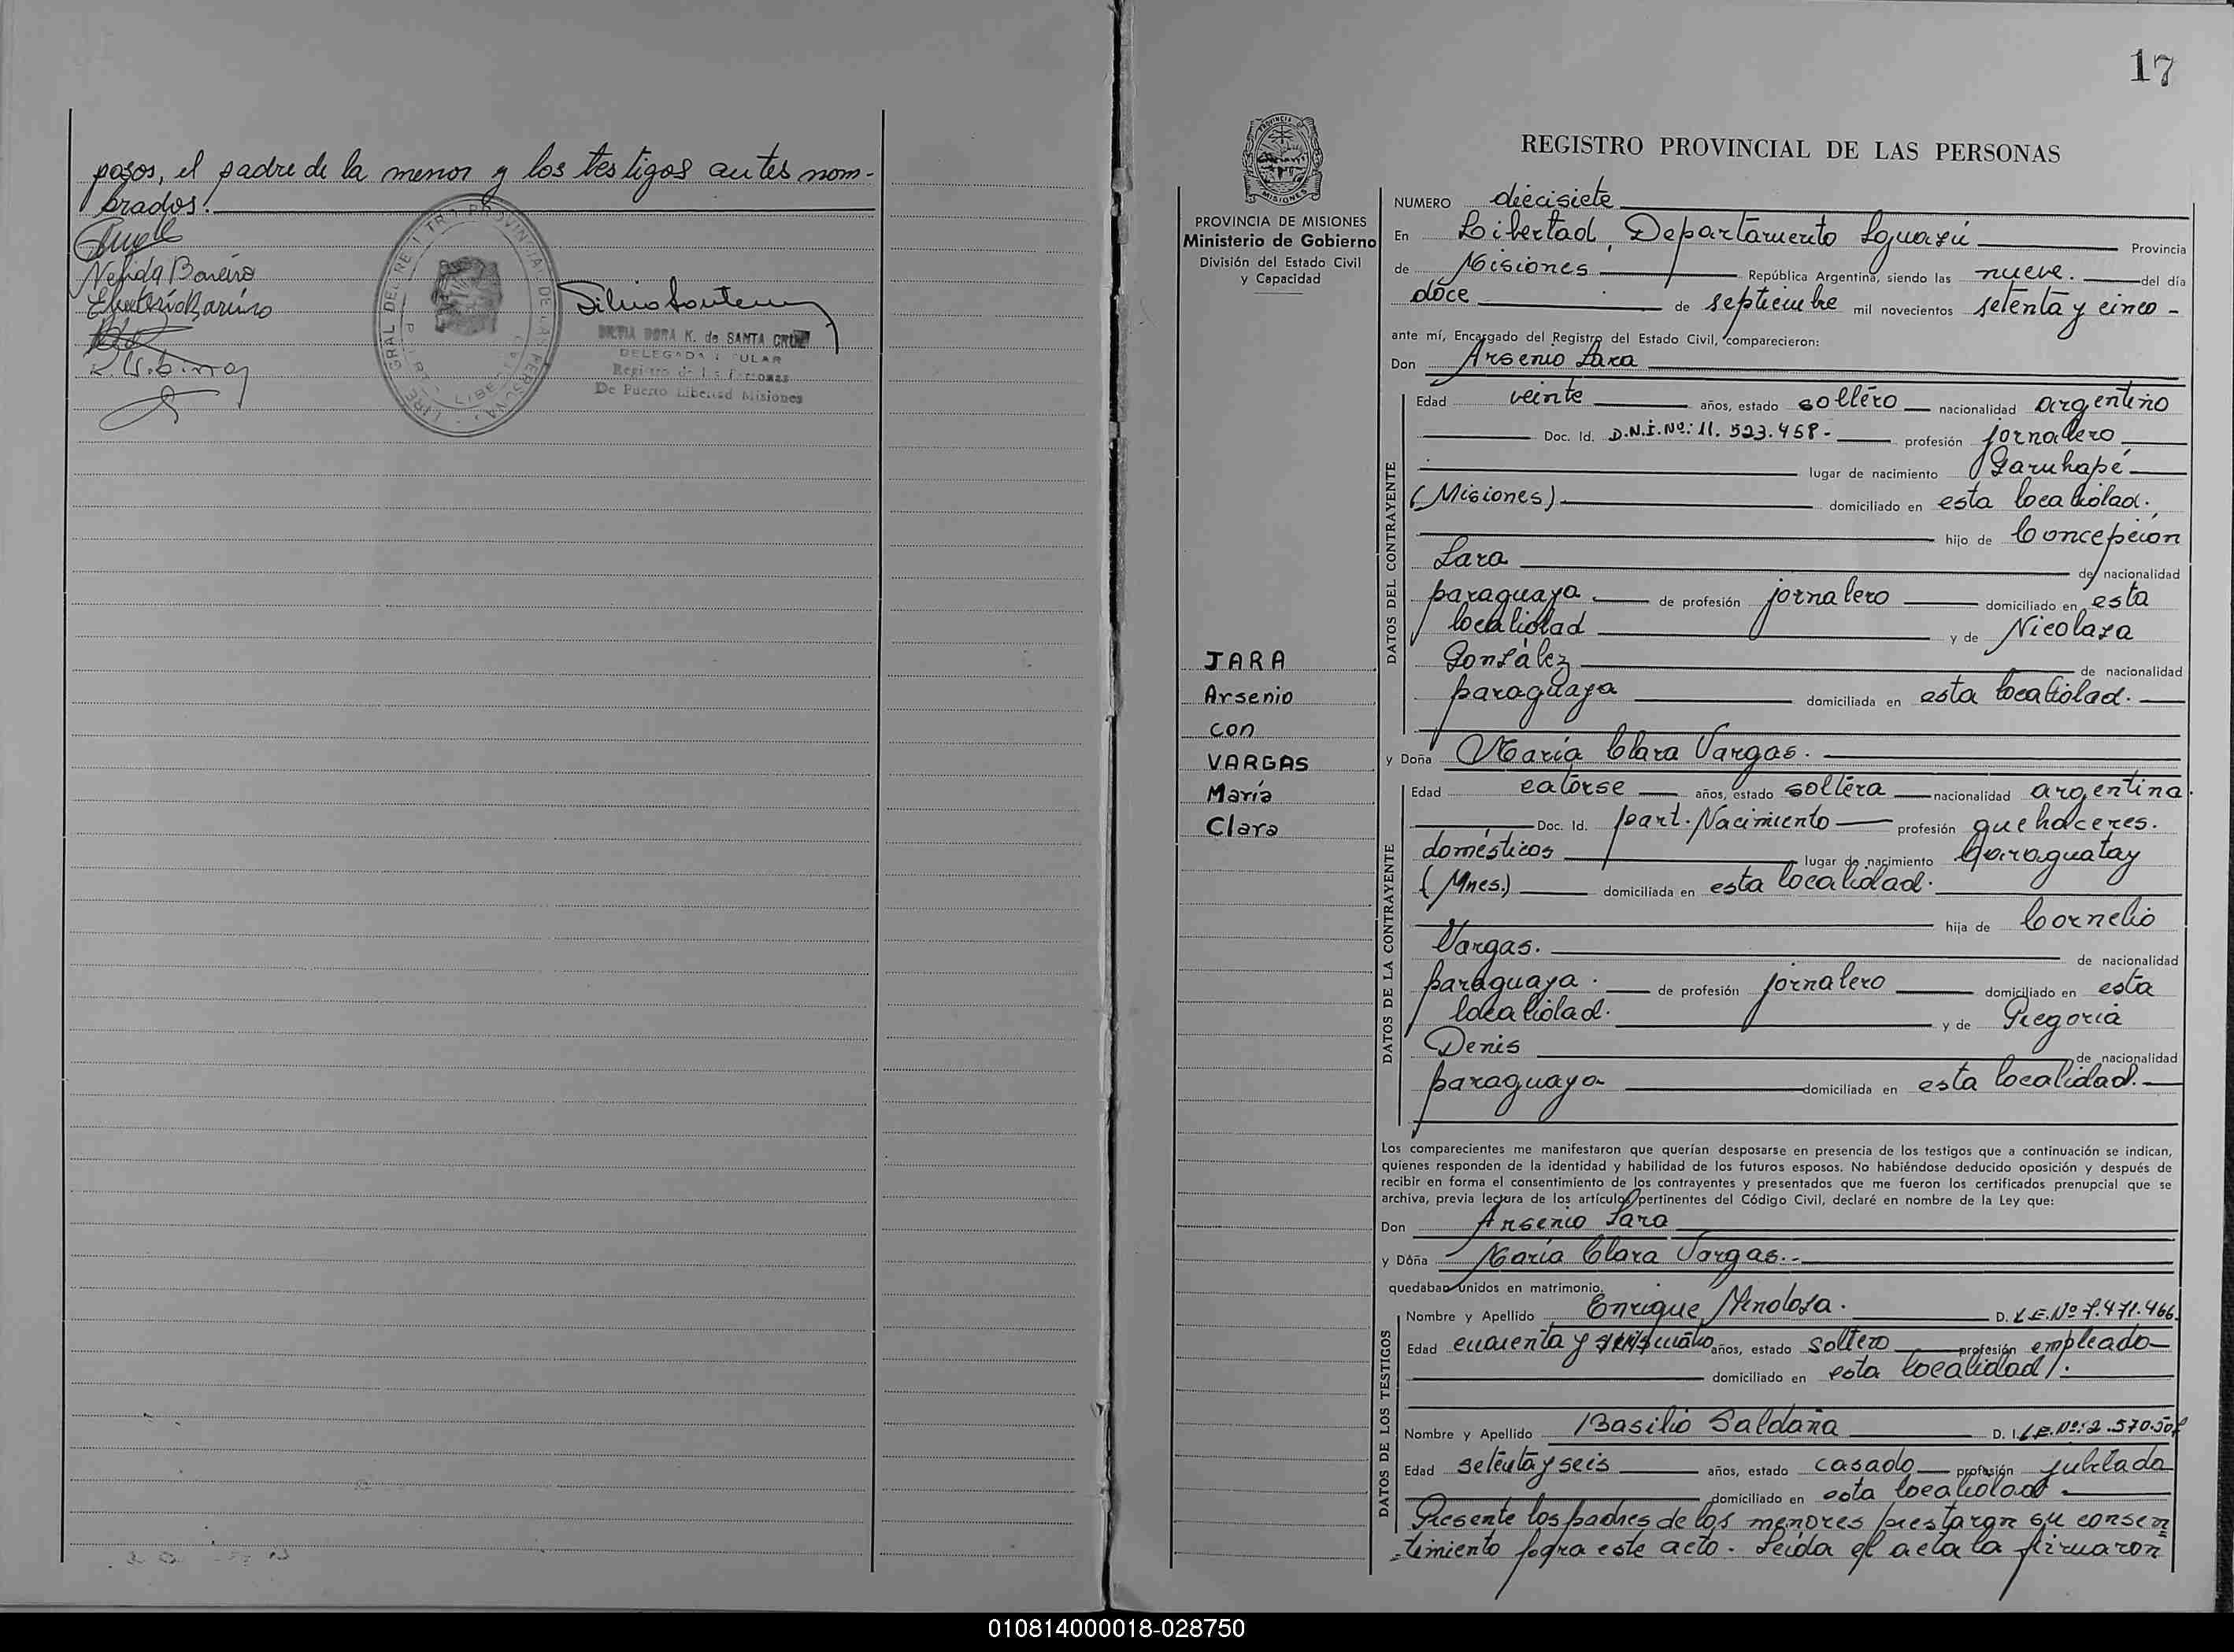 posos, el padre de la menor y los testigos antes nom-
brados.
Nelida Boneiro
DELEGADA TITULAR
Registro de las Personas
De Puerto Libertad Misiones
17
PROVINCIA DE MISIONES
Ministerio de Gobierno
División del Estado Civil
y Capacidad
JARA
Arsenio
con
VARGAS
María
Clara
REGISTRO PROVINCIAL DE LAS PERSONAS
NUMERO diecisiete
En Libertad, Departamento Iguazú Provincia
de Misiones República Argentina, siendo las nueve. del día
doce de septiembre mil novecientos setenta y cinco -
ante mí, Encargado del Registro del Estado Civil, comparecieron:
Don Arsenio Jara
DATOS DEL CONTRAYENTE
Edad veinte años, estado soltero nacionalidad argentino
Doc. Id. D.N.I.Nº: 11.523.458- profesión jornalero
lugar de nacimiento Garuhapé
(Misiones) domiciliado en esta localidad.
hijo de Concepción
Jara de nacionalidad
paraguaya de profesión jornalero domiciliado en esta
localidad y de Nicolaza
González de nacionalidad
paraguaya domiciliada en esta localidad.
y Doña María Clara Vargas.
DATOS DE LA CONTRAYENTE
Edad catorse años, estado soltera nacionalidad argentina.
Doc. Id. part. Nacimiento profesión quehaceres.
domésticos lugar de nacimiento Caraguatay
(Mnes.) domiciliada en esta localidad.
hija de Cornelio
Vargas. de nacionalidad
paraguaya. de profesión jornalero domiciliado en esta
localidad. y de Gregoria
Denis de nacionalidad
paraguaya domiciliada en esta localidad.
Los comparecientes me manifestaron que querían desposarse en presencia de los testigos que a continuación se indican,
quienes responden de la identidad y habilidad de los futuros esposos. No habiéndose deducido oposición y después de
recibir en forma el consentimiento de los contrayentes y presentados que me fueron los certificados prenupcial que se
archiva, previa lectura de los artículos pertinentes del Código Civil, declaré en nombre de la Ley que:
Don Arsenio Jara
y Doña María Clara Vargas.-
quedaban unidos en matrimonio.
DATOS DE LOS TESTIGOS
Nombre y Apellido Enrique Mendoza. D. L.E.Nº 7.471.466
Edad cuarenta y cuatro años, estado soltero profesión empleado
domiciliado en esta localidad.
Nombre y Apellido Basilio Saldaña D. I. L.E.Nº: 2.570.50
Edad setenta y seis años, estado casado profesión jubilado
domiciliado en esta localidad.
Presente los padres de los menores prestaron su consen
=timiento para este acto. Leida el acta la firmaron
010814000018-028750